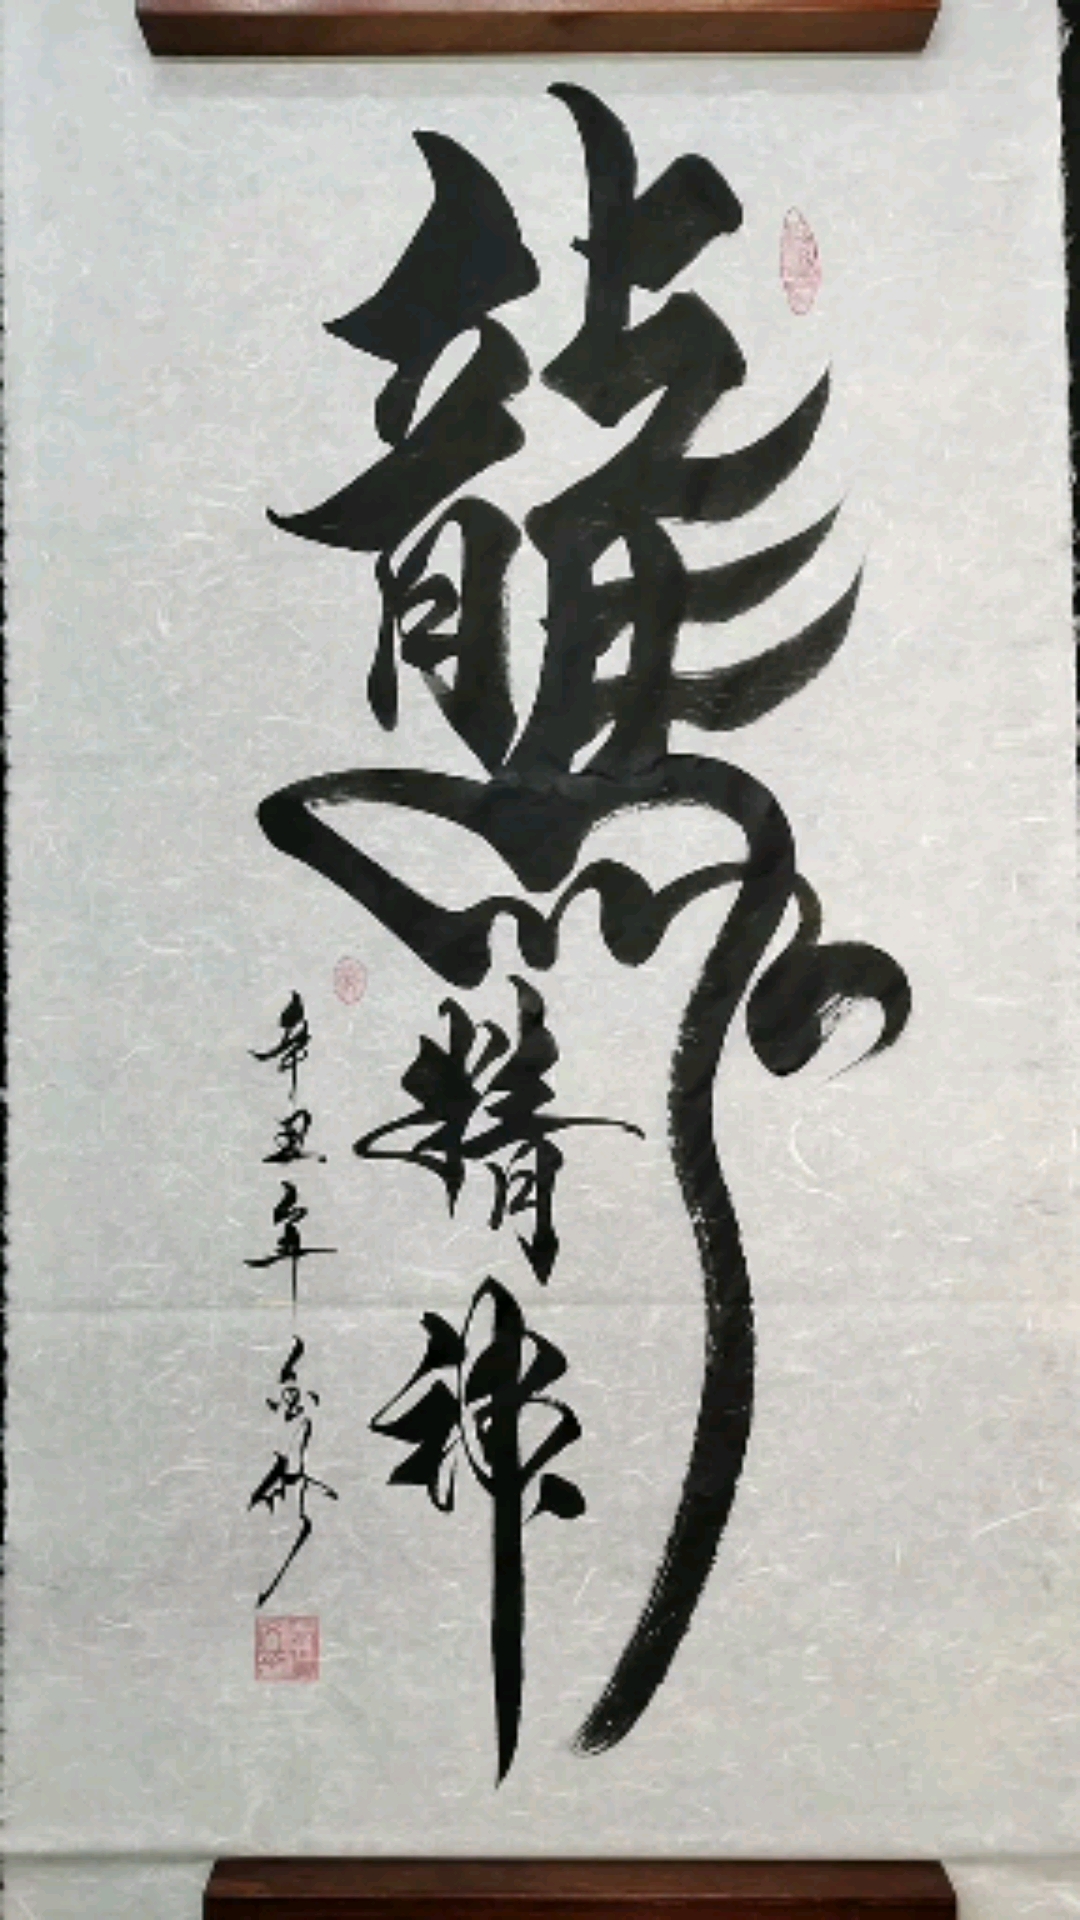 龍馬精神
辛丑年